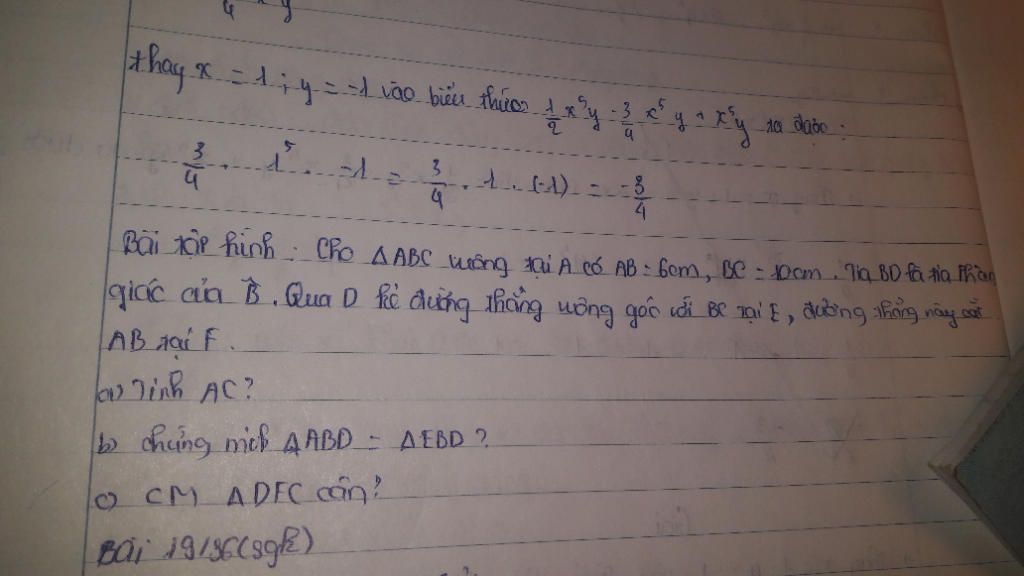 4 y
thay x = 1 ; y = -1 vào biểu thức 1/2 x⁵y - 3/4 x⁵y + x⁵y ta được :
3/4 . 1⁵ . -1 = 3/4 . 1 . (-1) = -3/4
Bài tập hình : Cho ΔABC vuông tại A có AB = 6cm, BC = 10cm. Tia BD là tia phân
giác của B̂. Qua D kẻ đường thẳng vuông góc với BC tại E, đường thẳng này cắt
AB tại F.
a) Tính AC?
b) chứng minh ΔABD = ΔEBD?
c) CM ΔDFC cân?
Bài 19/36(sgk)